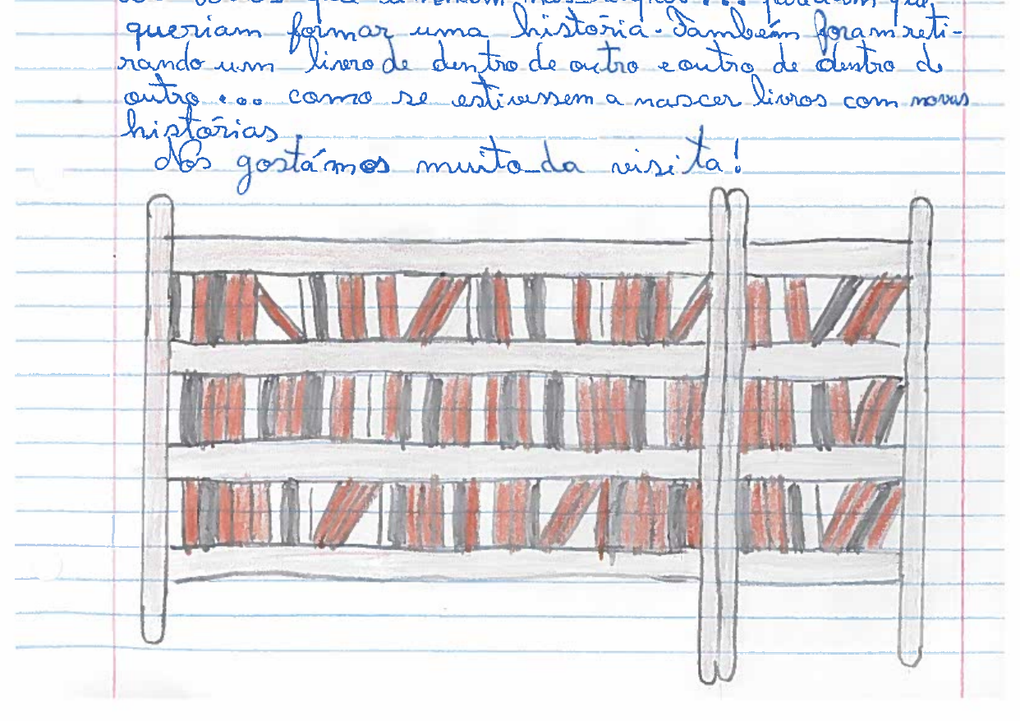 queriam formar uma história. Também foram reti-
rando um livro de dentro de outro e outro de dentro de
outro ... como se estivessem a nascer livros com novas
histórias.
Nós gostámos muito da visita!